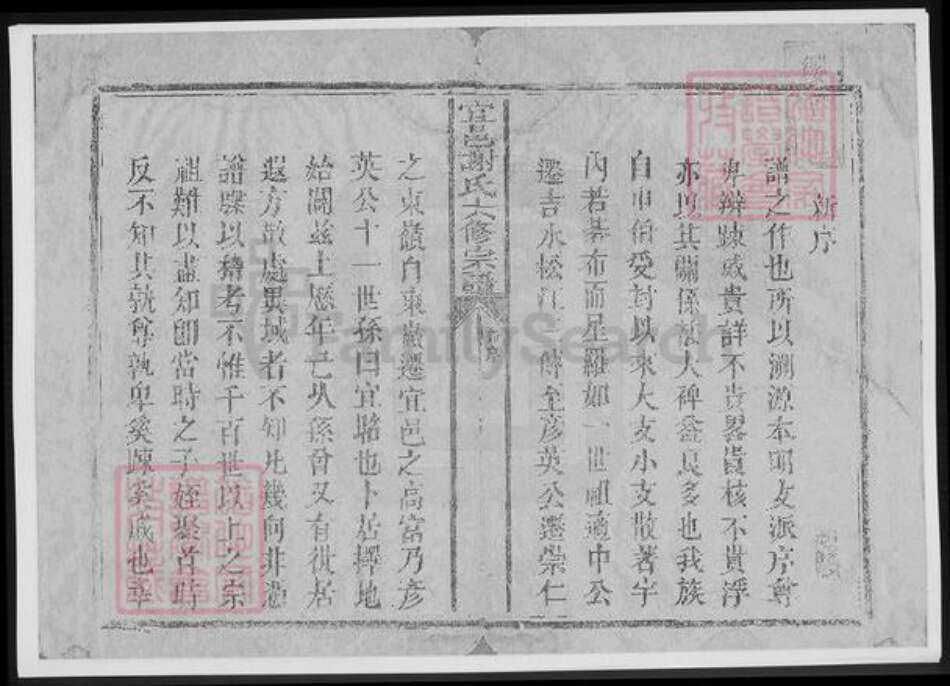 新序
譜之作也所以溯源本明支派序尊
卑辨踈戚貴詳不貴畧貴核不貴浮
亦以其關係大裨益良多也我族
自申伯受封以來大支小支散著宇
內若碁布而星羅如一世祖適中公
遷吉水松江傳至彥英公遷崇仁
宜邑謝氏六修宗譜
新序
之東嶺自東嶺遷宜邑之高富乃彥
英公十一世孫曰宜韜也卜居擇地
始闢茲土歷年已久孫曾又有徙居
遐方散處異域者不知凡幾向非憑
譜牒以稽考不惟千百世以上之宗
祖難以盡知即當時之子姪聚首時
反不知其孰尊孰卑奚踈奚戚也幸
FamilySearch